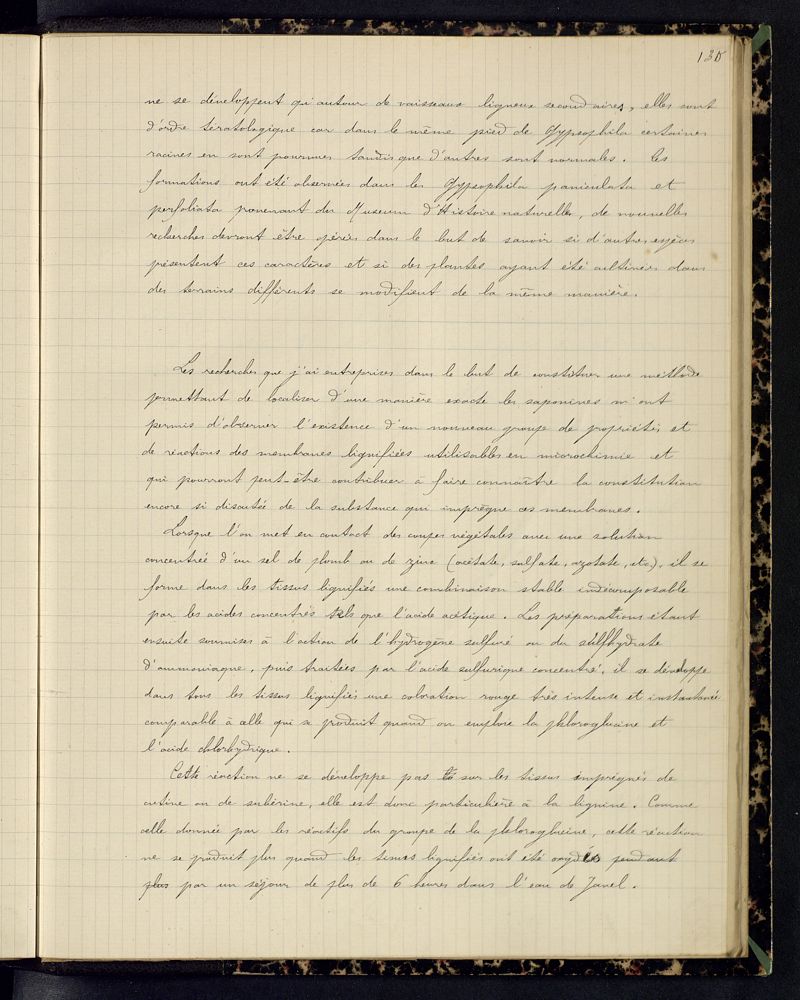 135
ne se développent qu'autour de vaisseaux ligneux secondaires, elles sont
d'ordre tératologique car dans le même pied de Gypsophila certaines
racines en sont pourvues tandis que d'autres sont normales. Ces
formations ont été observées dans les Gypsophila paniculata et
perfoliata provenant du Museum d'Histoire naturelle, de nouvelles
recherches devront être opérées dans le but de savoir si d'autres espèces
présentent ces caractères et si des plantes ayant été cultivées dans
des terrains différents se modifient de la même manière.
Les recherches que j'ai entreprises dans le but de constituer une méthode
permettant de localiser d'une manière exacte les saponines m'ont
permis d'observer l'existence d'un nouveau groupe de propriétés et
de réactions des membranes lignifiées utilisables en microchimie et
qui pourront peut-être contribuer à faire connaître la constitution
encore si discutée de la substance qui imprègne ces membranes.
Lorsque l'on met en contact des coupes végétales avec une solution
concentrée d'un sel de plomb ou de zinc (acétate, sulfate, azotate, etc), il se
forme dans les tissus lignifiés une combinaison stable indécomposable
par les acides concentrés tels que l'acide acétique. Les préparations étant
ensuite soumises à l'action de l'hydrogène sulfuré ou du sulfhydrate
d'ammoniaque, puis traitées par l'acide sulfurique concentré, il se développe
dans tous les tissus lignifiés une coloration rouge très intense et instantanée
comparable à celle qui se produit quand on emploie la phloroglucine et
l'acide chlorhydrique.
Cette réaction ne se développe pas sur les tissus imprégnés de
cutine ou de subérine, elle est donc particulière à la lignine. Comme
celle donnée par les réactifs du groupe de la phloroglucine, cette réaction
ne se produit plus quand les tissus lignifiés ont été oxydés pendant
plus par un séjour de plus de 6 heures dans l'eau de Javel.